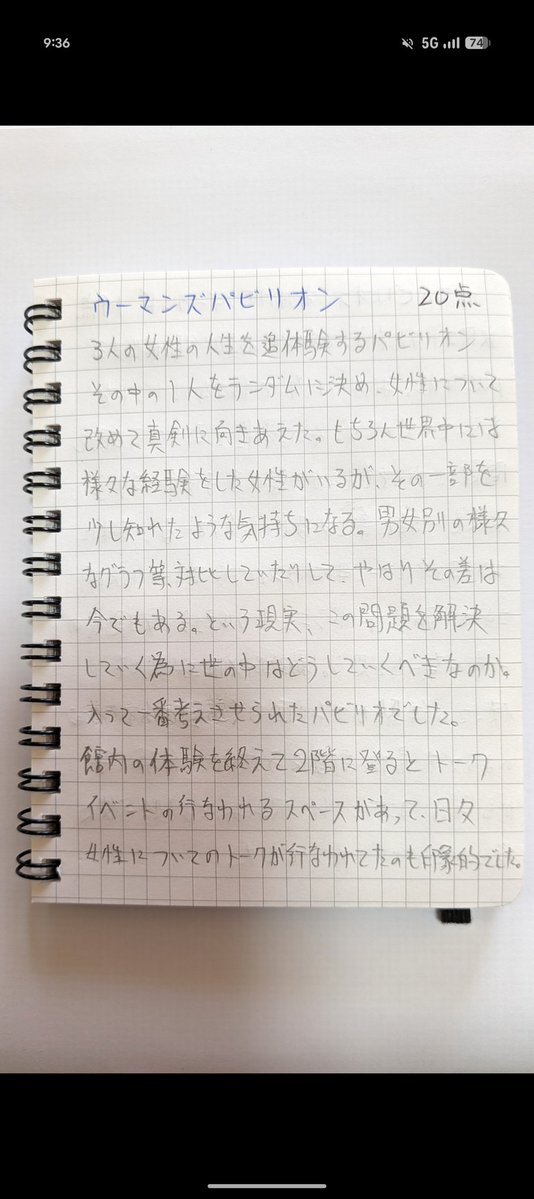 9:36
5G
74
ウーマンズパビリオン 20点
3人の女性の人生を追体験するパビリオン
その中の1人をランダムに決め、女性について
改めて真剣に向きあえた。もちろん世界中には
様々な経験をした女性がいるが、その一部を
少し知れたような気持ちになる。男女別の様々
なグラフ等、対比していたりして、やはりその差は
今でもある。という現実、この問題を解決
していく為に世の中はどうしていくべきなのか。
入って一番考えさせられたパビリオでした。
館内の体験を終えて2階に登るとトーク
イベントの行なわれるスペースがあって、日々
女性についてのトークが行なわれてたのも印象的でした。